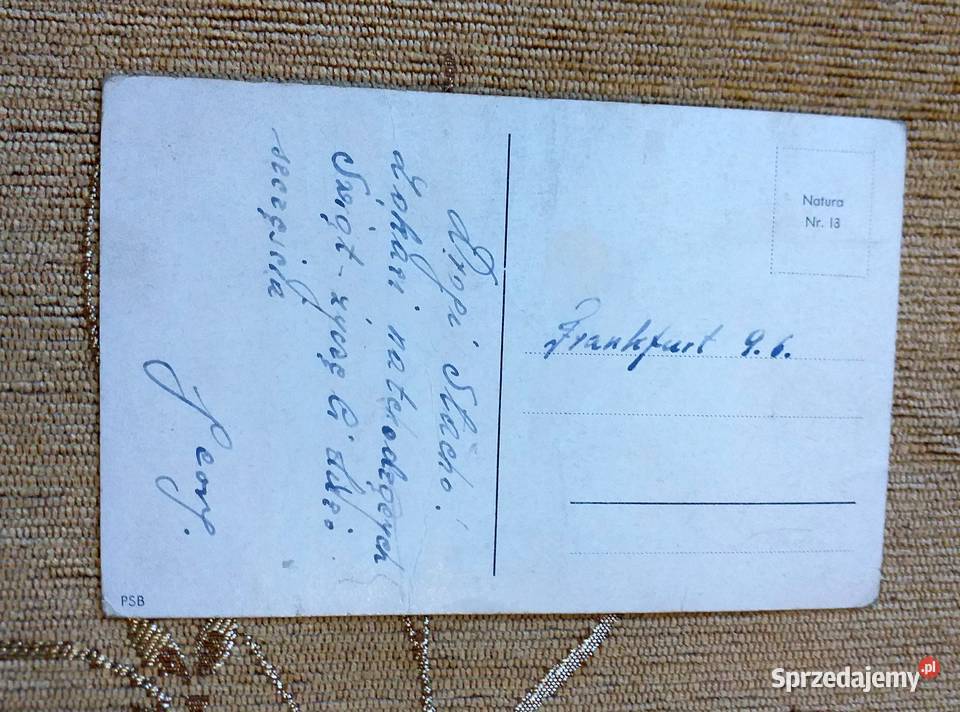 Drogi Stacho!
Z okazji natchodzących
Swiąt - życzę Ci dużo
szczęścia
Georg.
PSB
Natura
Nr. 13
Frankfurt 9.6.
Sprzedajemy.pl